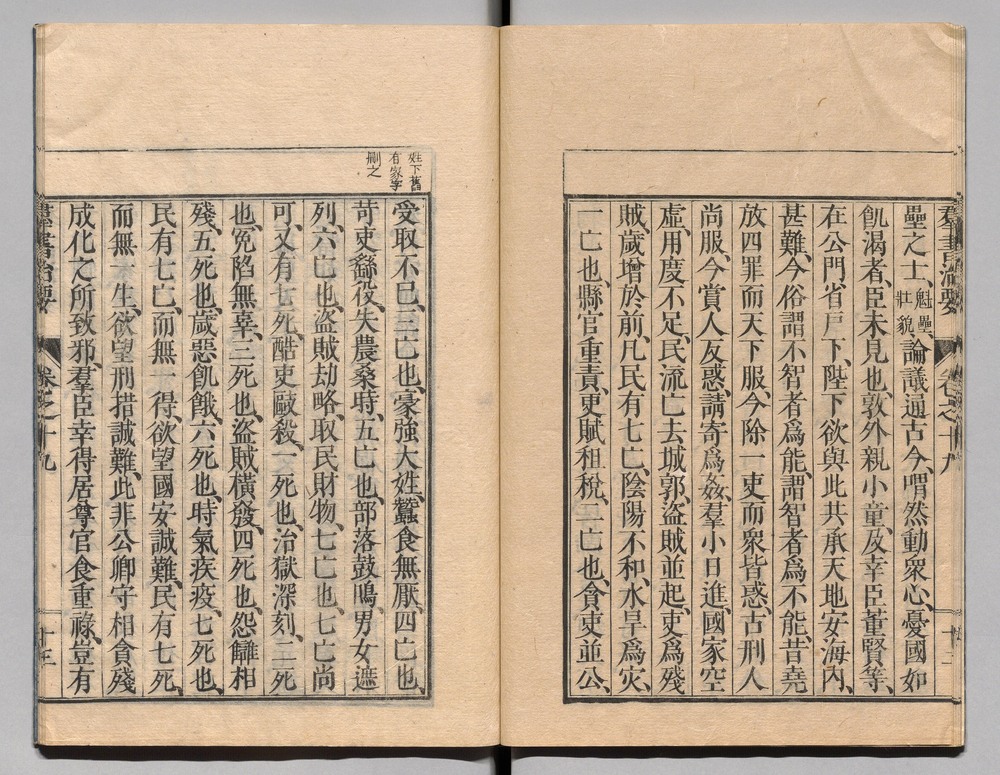 羣書治要 卷之十九 十二
壘之士、魁壘壯貌、論議通古今、喟然動衆心、憂國如
飢渴者、臣未見也、敦外親小童、及幸臣董賢等、
在公門、省戸下、陛下欲與此共承天地、安海內、
甚難、今俗謂不智者爲能、謂智者爲不能、昔堯
放四罪而天下服、今除一吏而衆皆惑、古刑人
尚服、今賞人反惑、請寄爲姦、羣小日進、國家空
虛、用度不足、民流亡去城郭、盜賊並起、吏爲殘
賊、歲增於前、凡民有七亡、陰陽不和、水旱爲灾、
一亡也、縣官重責、吏賦租稅、二亡也、貪吏並公、
姓下舊
有家字
刪之
受取不已、三亡也、豪強大姓、蠶食無厭、四亡也、
苛吏繇役、失農桑時、五亡也、部落鼓鳴、男女遮
列、六亡也、盜賊劫略、取民財物、七亡也、七亡尚
可、又有七死、酷吏毆殺、一死也、治獄深刻、二死
也、冤陷無辜、三死也、盜賊橫發、四死也、怨讎相
殘、五死也、歲惡飢餓、六死也、時氣疾疫、七死也、
民有七亡、而無一得、欲望國安誠難、民有七死、
而無一生、欲望刑措誠難、此非公卿守相、貪殘
成化之所致邪、羣臣幸得居尊官食重祿、豈有
羣書治要 卷之十九 十三